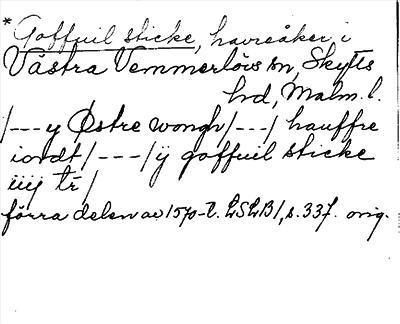 * Goffuil sticke, havreåker i
Västra Vemmerlövs sn, Skytts
hd, Malm. l.
/---y Østre wongh/---/ hauffre
iordt/---/ÿ goffuil sticke
iiij tr/
förra delen av 1570-t. LSLB1, s. 337. orig.